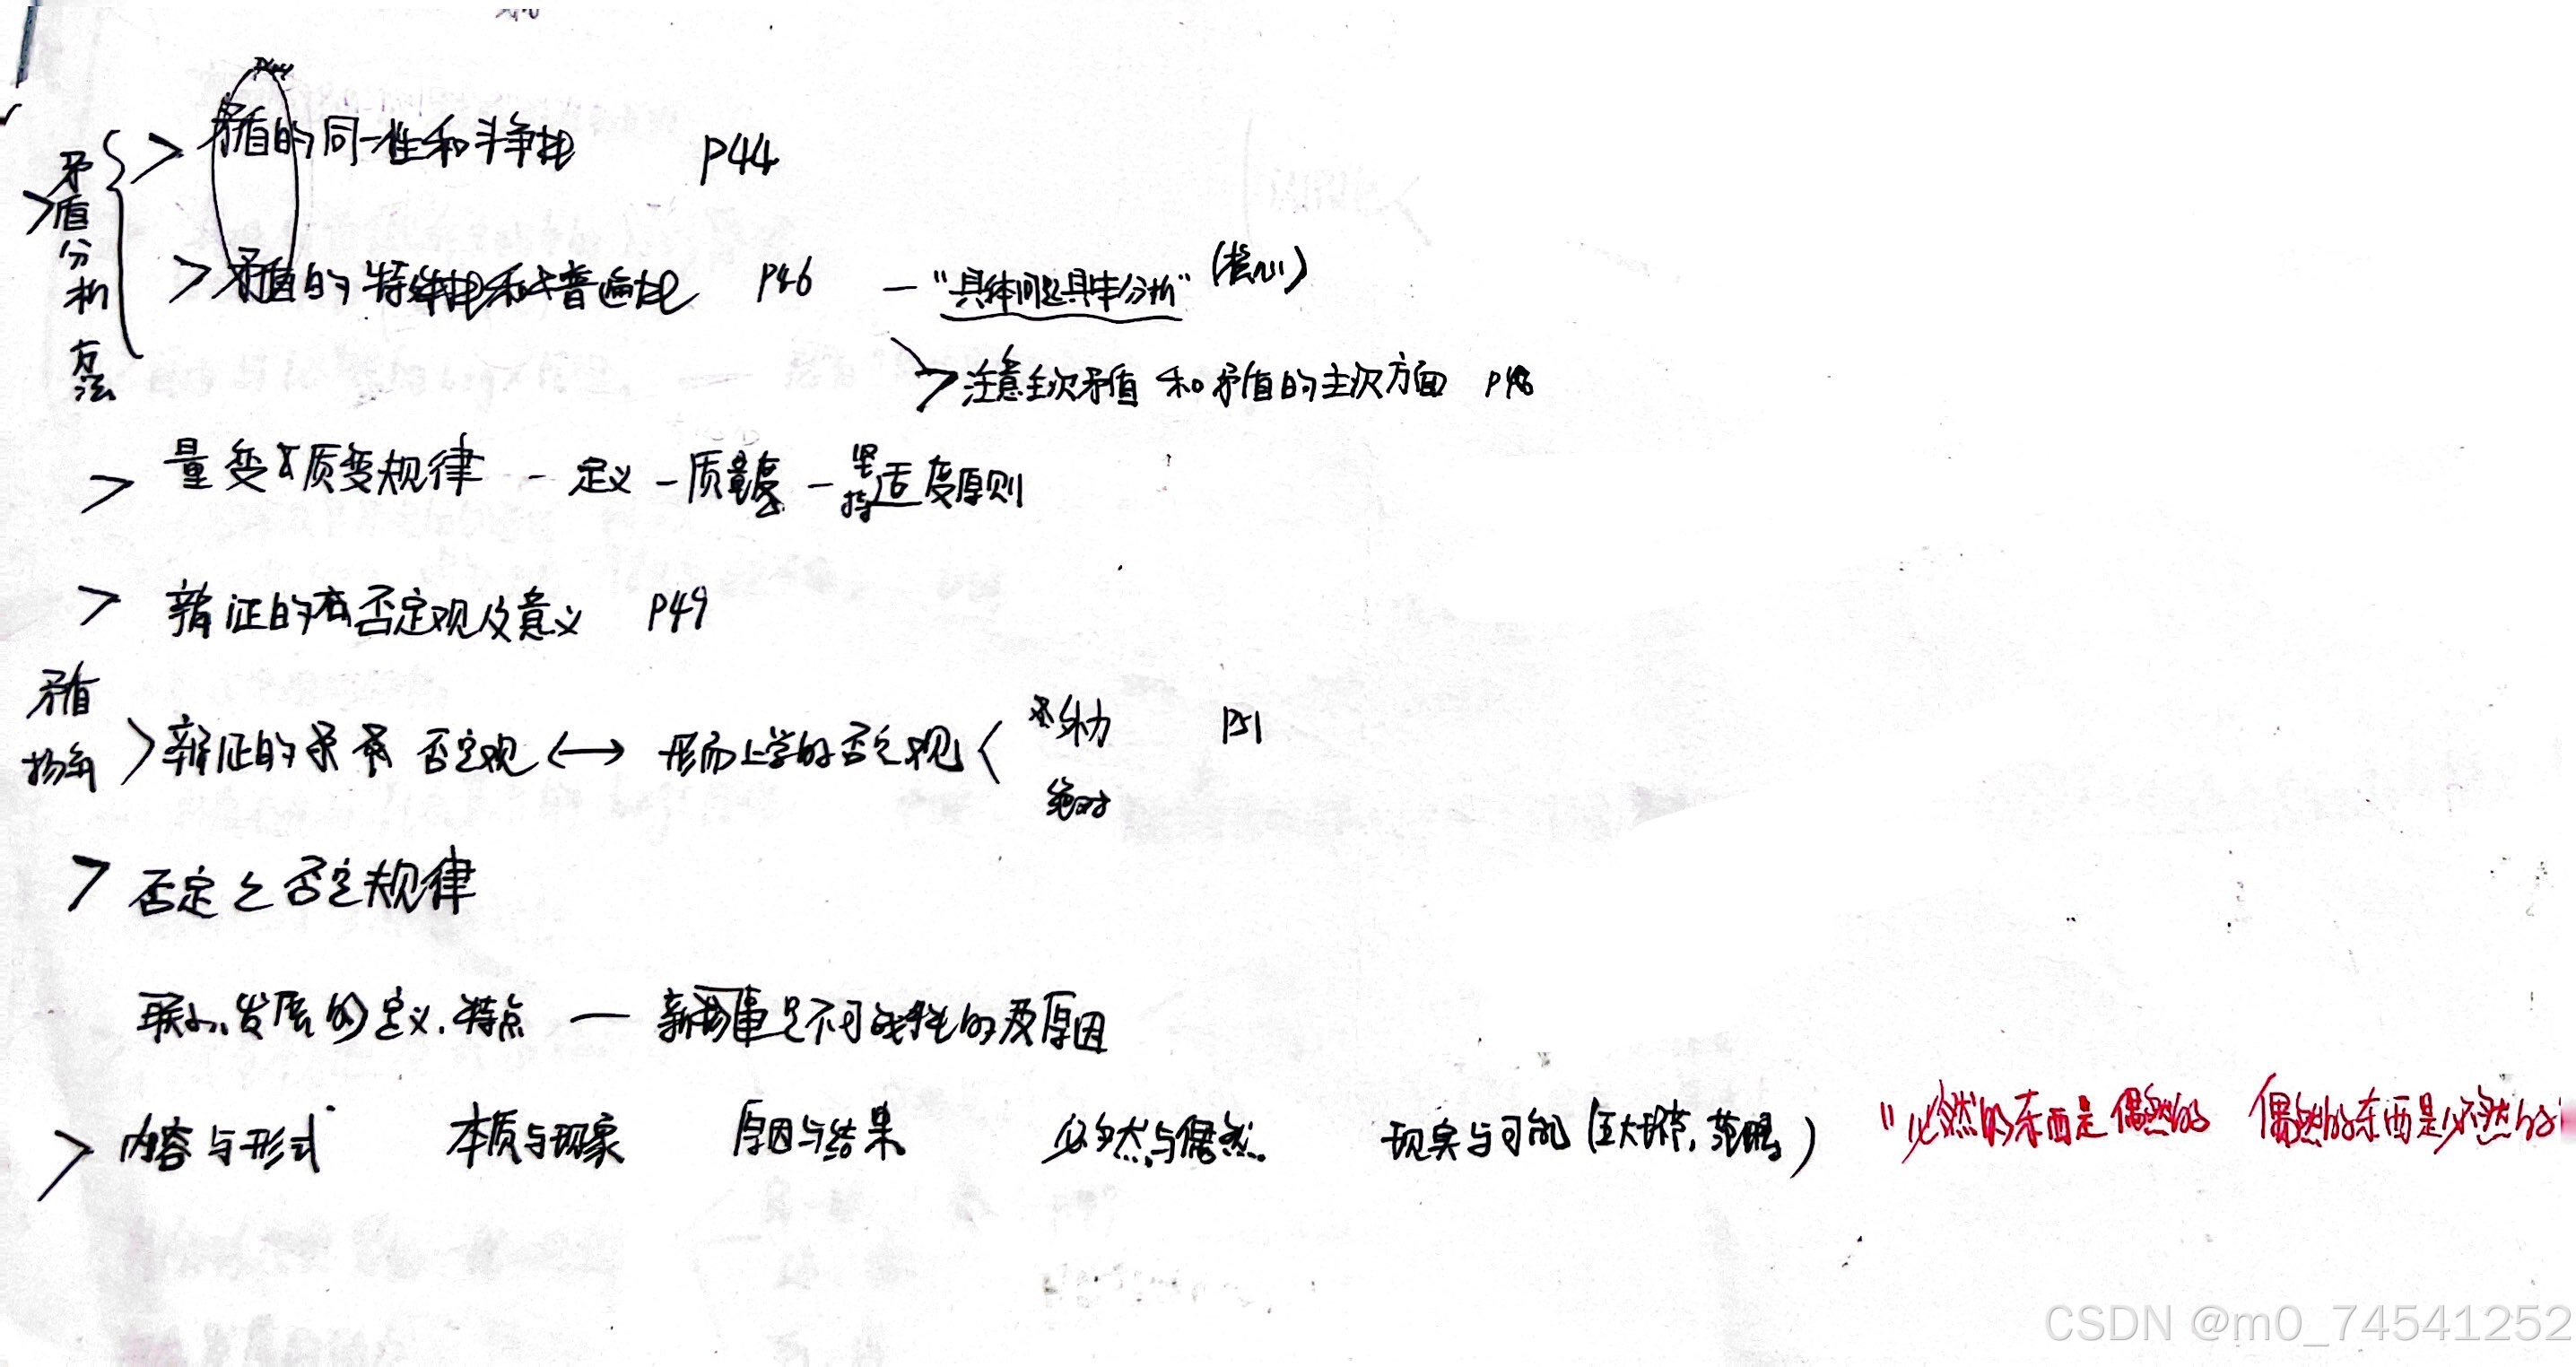 P44
矛盾分析方法
> 矛盾的同一性和斗争性 P44
> 矛盾的特殊性和普遍性 P46 — "具体问题具体分析" (核心)
> 注意主次矛盾和矛盾的主次方面 P48
> 量变质变规律 - 定义 - 质量度 - 坚持适度原则
> 辩证的否定观及意义 P49
矛盾
扬弃 > 辩证的 否定观 ↔ 形而上学的否定观 < 外力 P51
绝对
> 否定之否定规律
联系、发展的定义、特点 — 新事 不可战胜的及原因
> 内容与形式 本质与现象 原因与结果 必然与偶然 现实与可能 (五大 范畴) "必然的东西是偶然的 偶然的东西是必然的
CSDN @m0_74541252